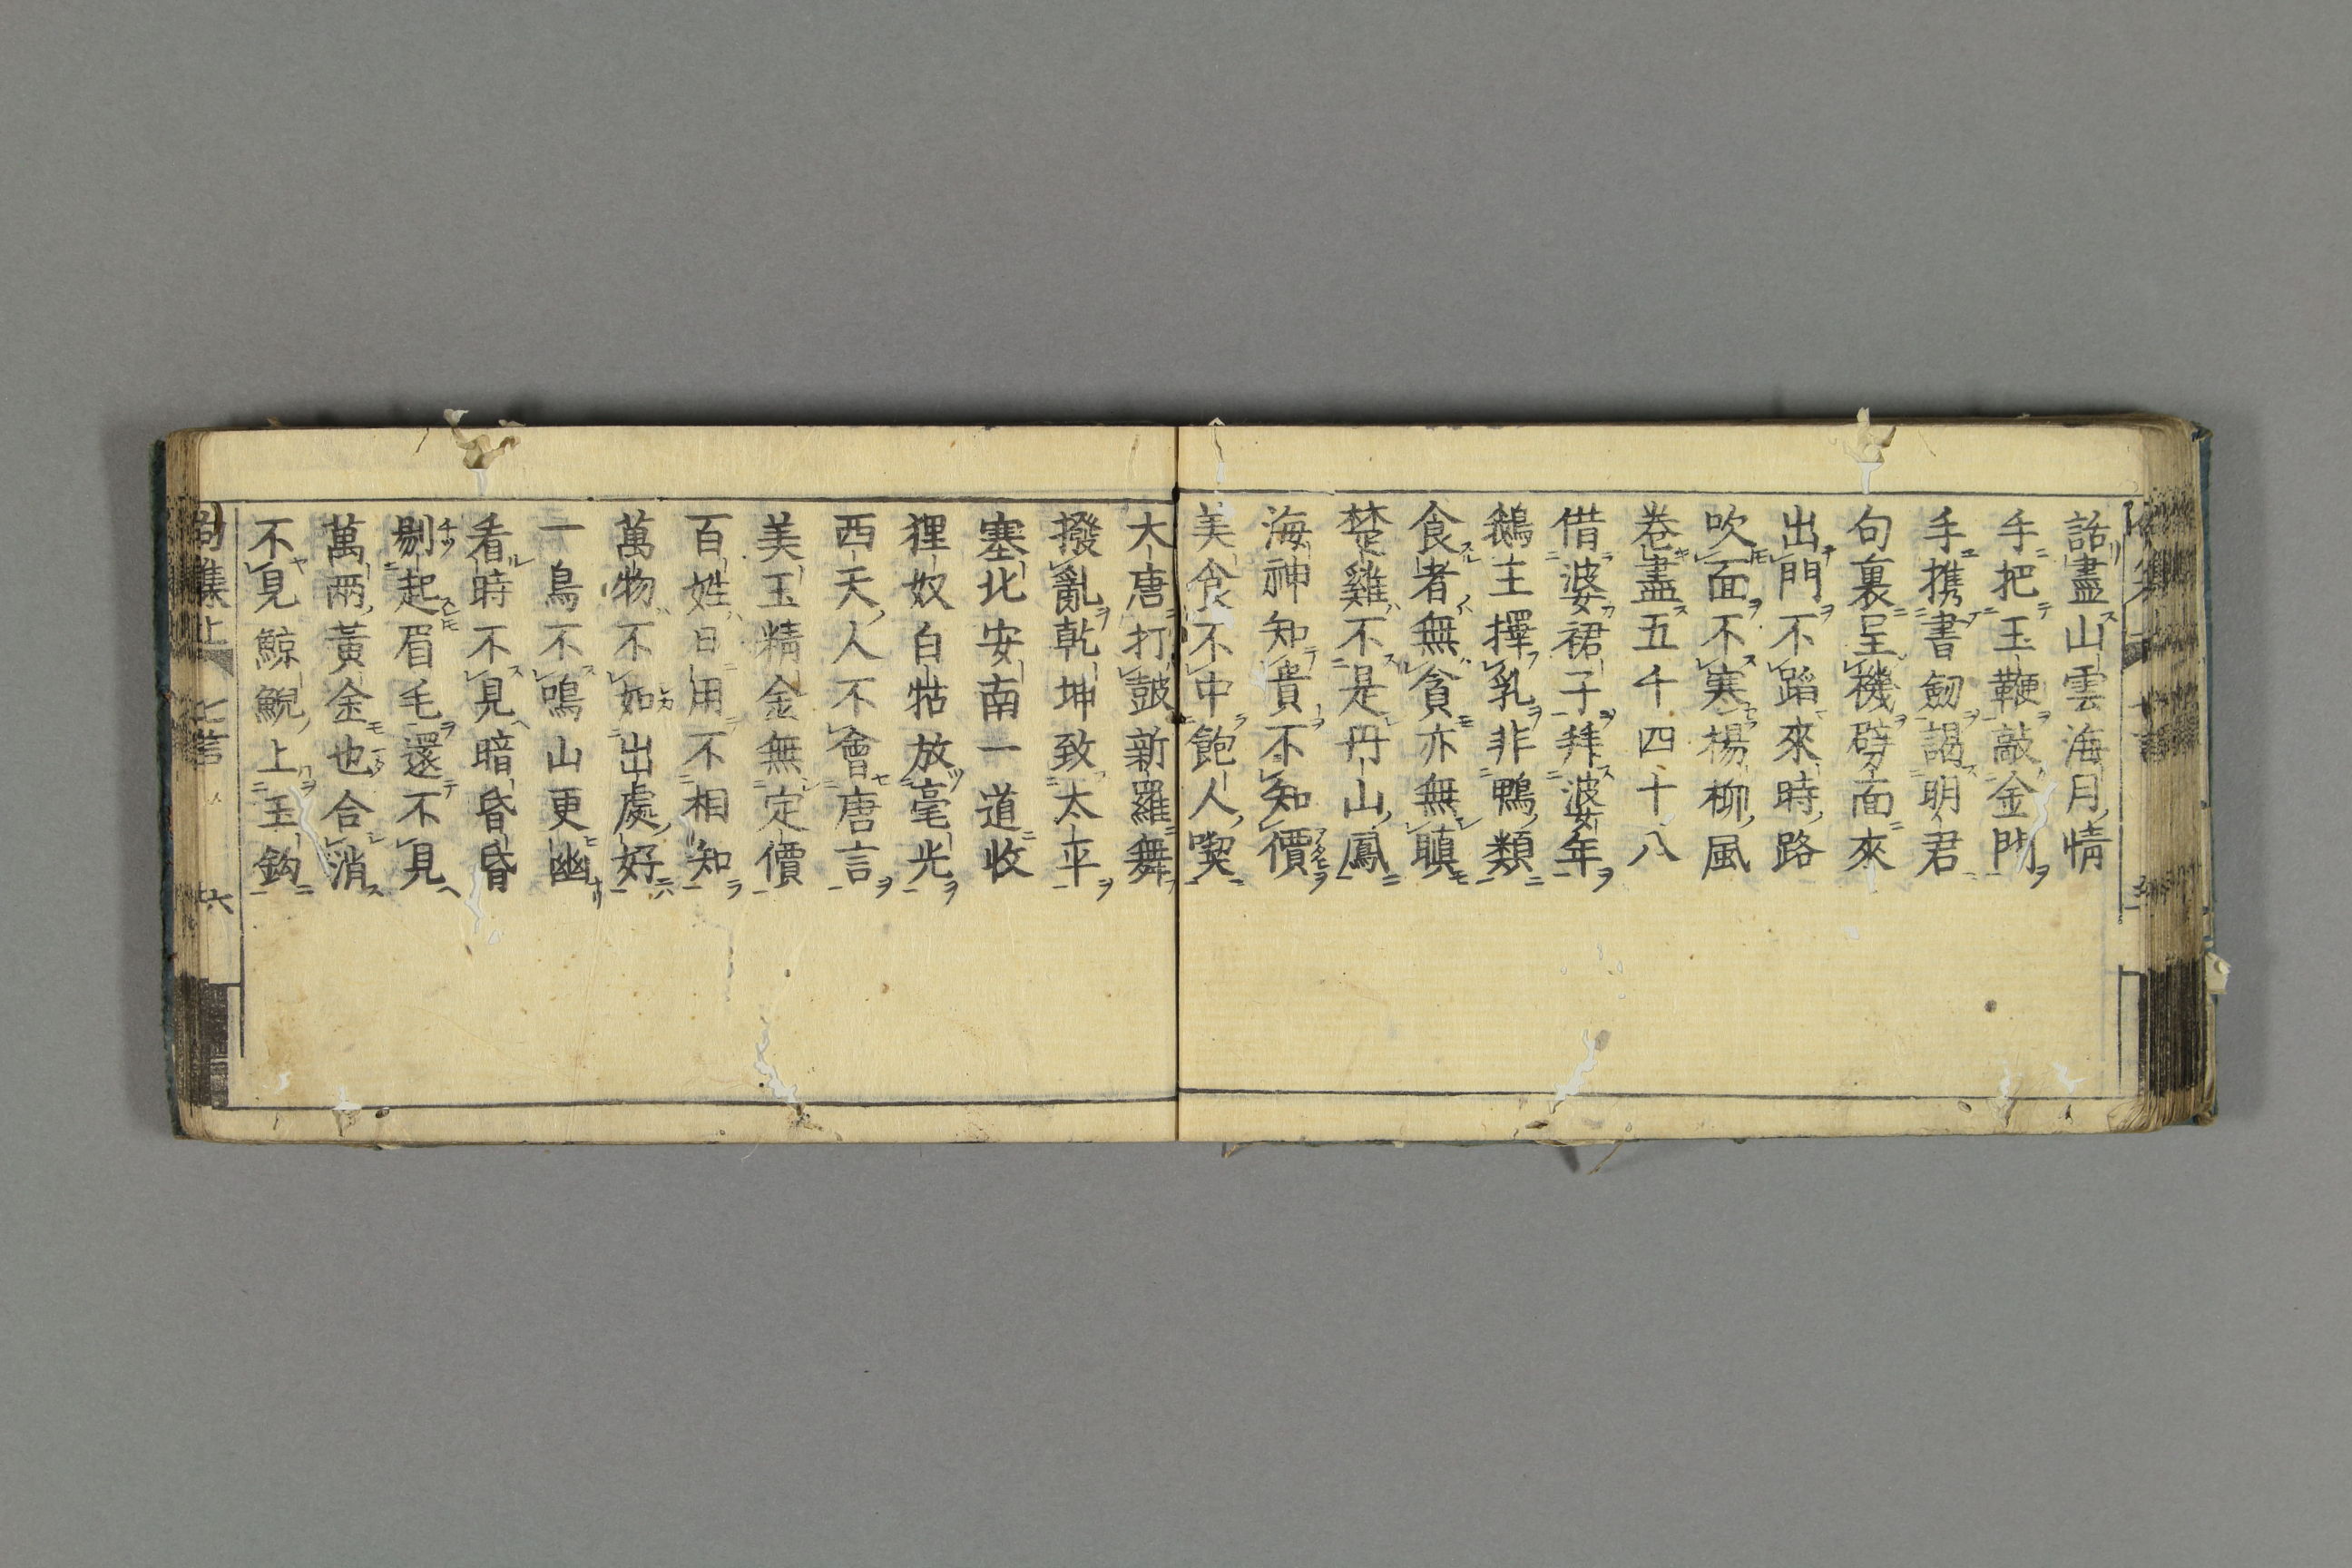 話盡山雲海月情
手把玉鞭敲金門
手携書劔謁明君
句裏呈機劈面來
出門不蹈來時路
吹面不寒楊柳風
卷盡五千四十八
借婆裙子拜婆年
鵝王擇乳非鴨類
食者無貪亦無瞋
楚雞不是丹山鳳
海神知貴不知價
美食不中飽人喫
大唐打皷新羅舞
撥亂乾坤致太平
塞北安南一道收
狸奴白牯放毫光
西天人不會唐言
美玉精金無定價
百姓日用不相知
萬物不如出處好
一鳥不鳴山更幽
看時不見暗昏昏
剔起眉毛還不見
萬兩黃金也合消
不見鯨鯢上玉鈎
句集上 七言 六